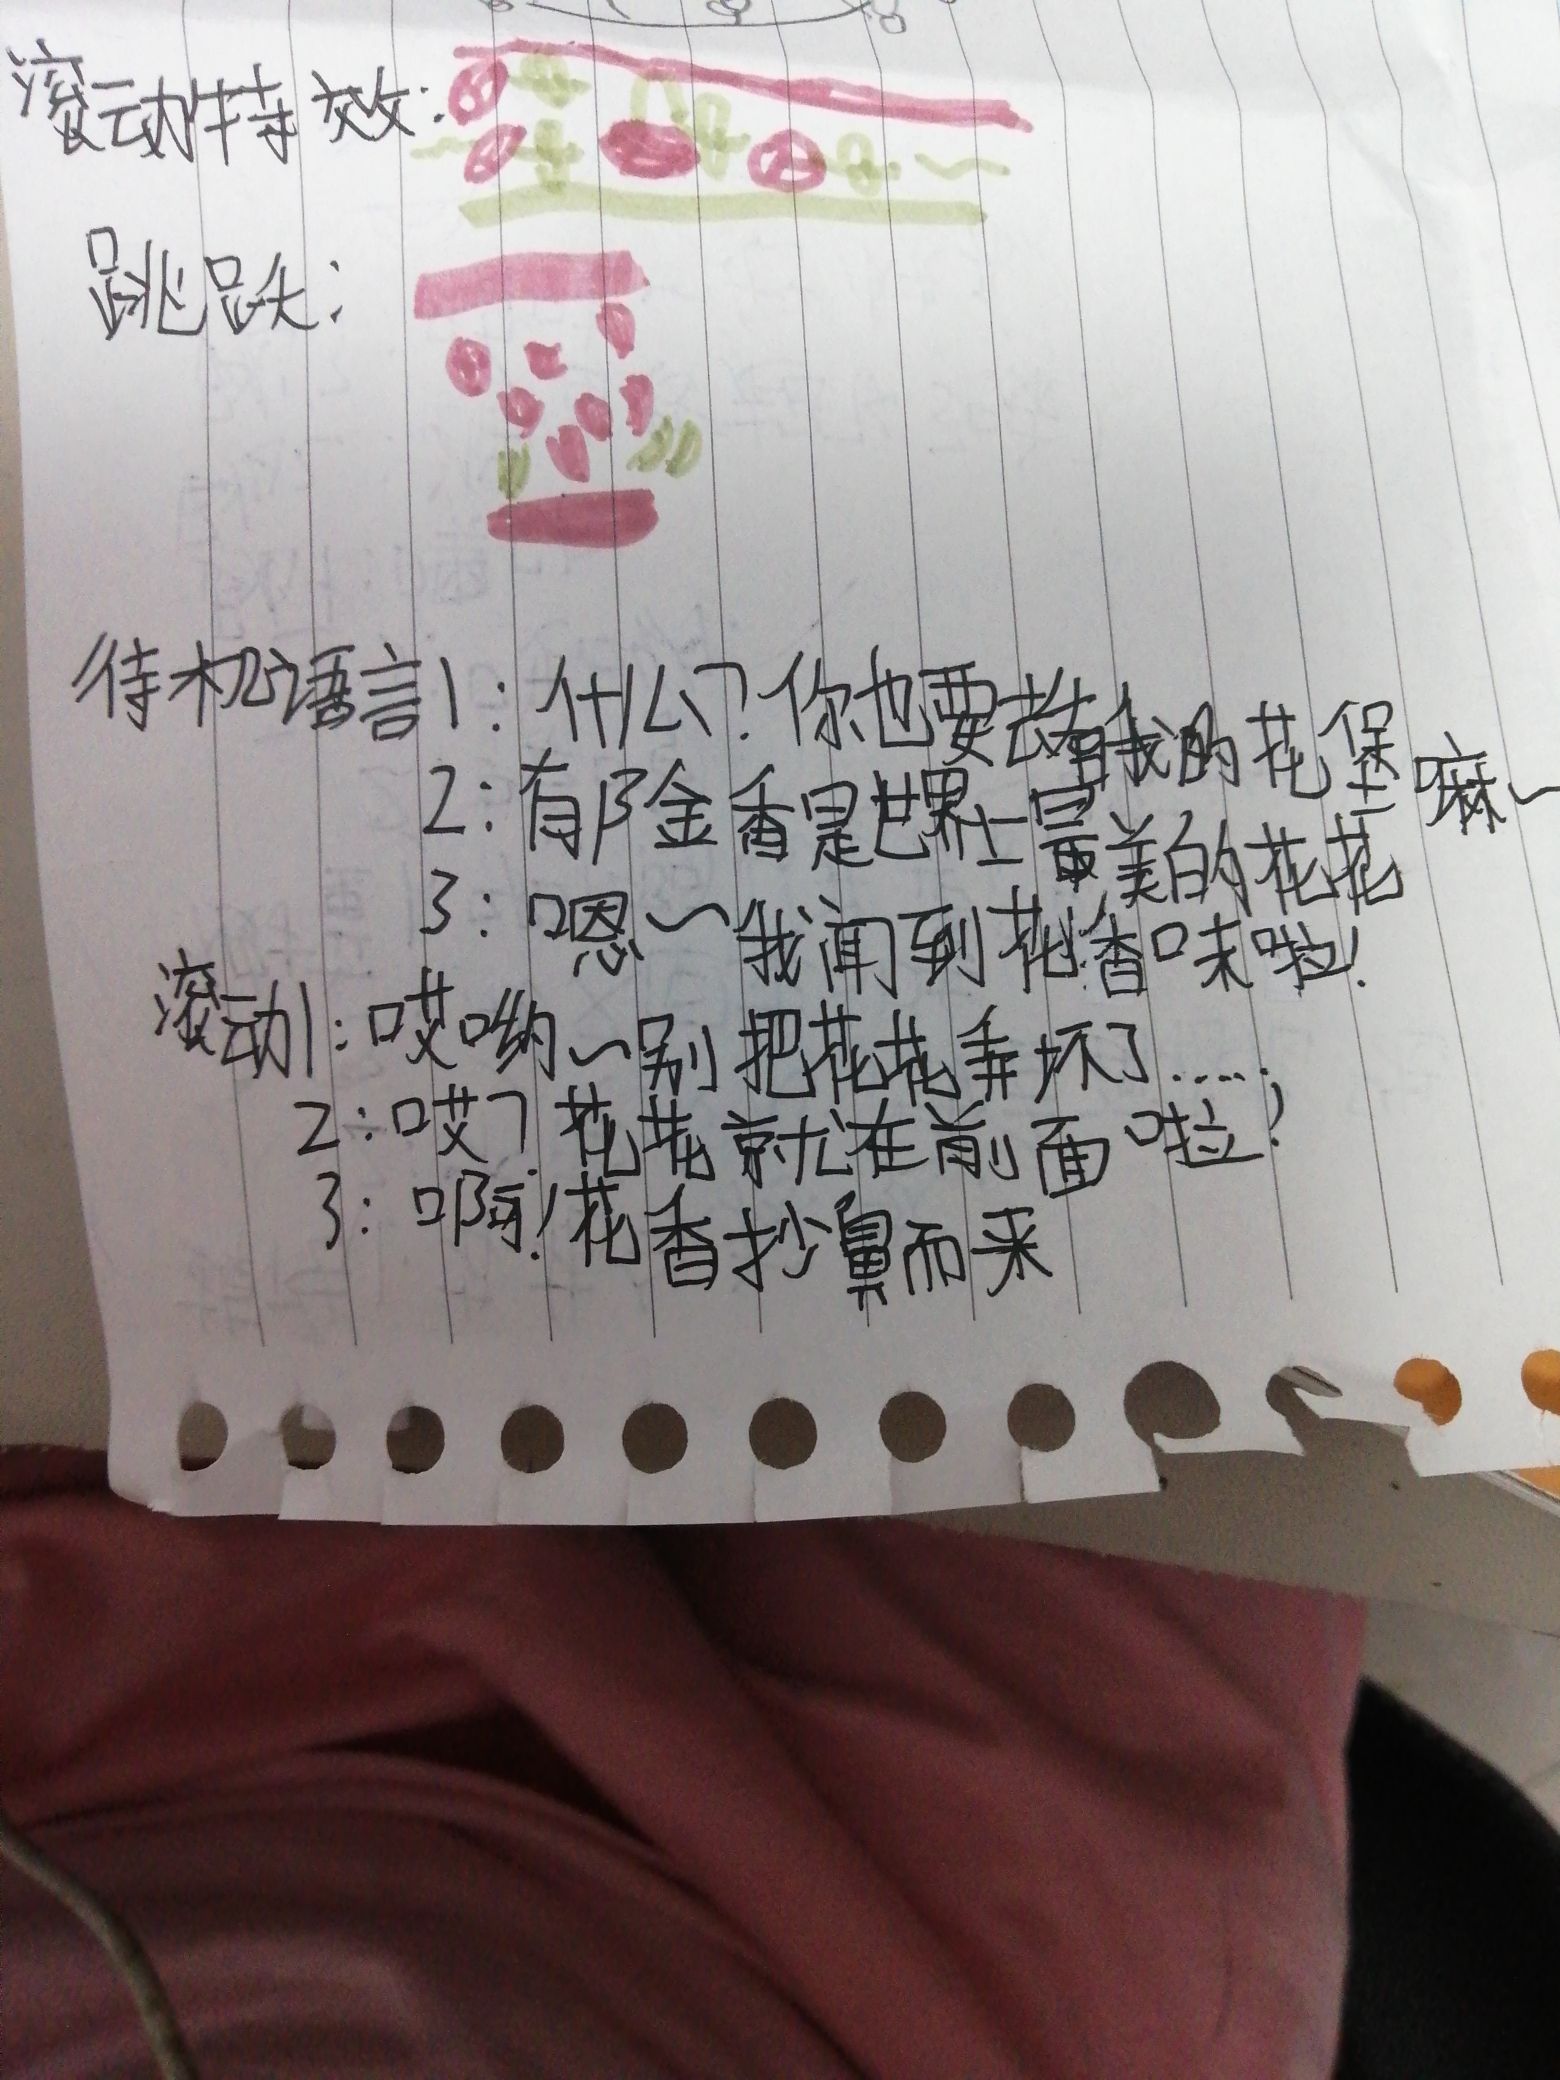 滚动特效:
跳跃:
待机语言1:什么?你也要去看我的花堡嘛~
2:有郁金香是世界上最美的花花
3:嗯~我闻到花香味啦!
滚动1:哎呦~别把花花弄坏了.....
2:哎?花花就在前面啦!
3:啊!花香抄鼻而来